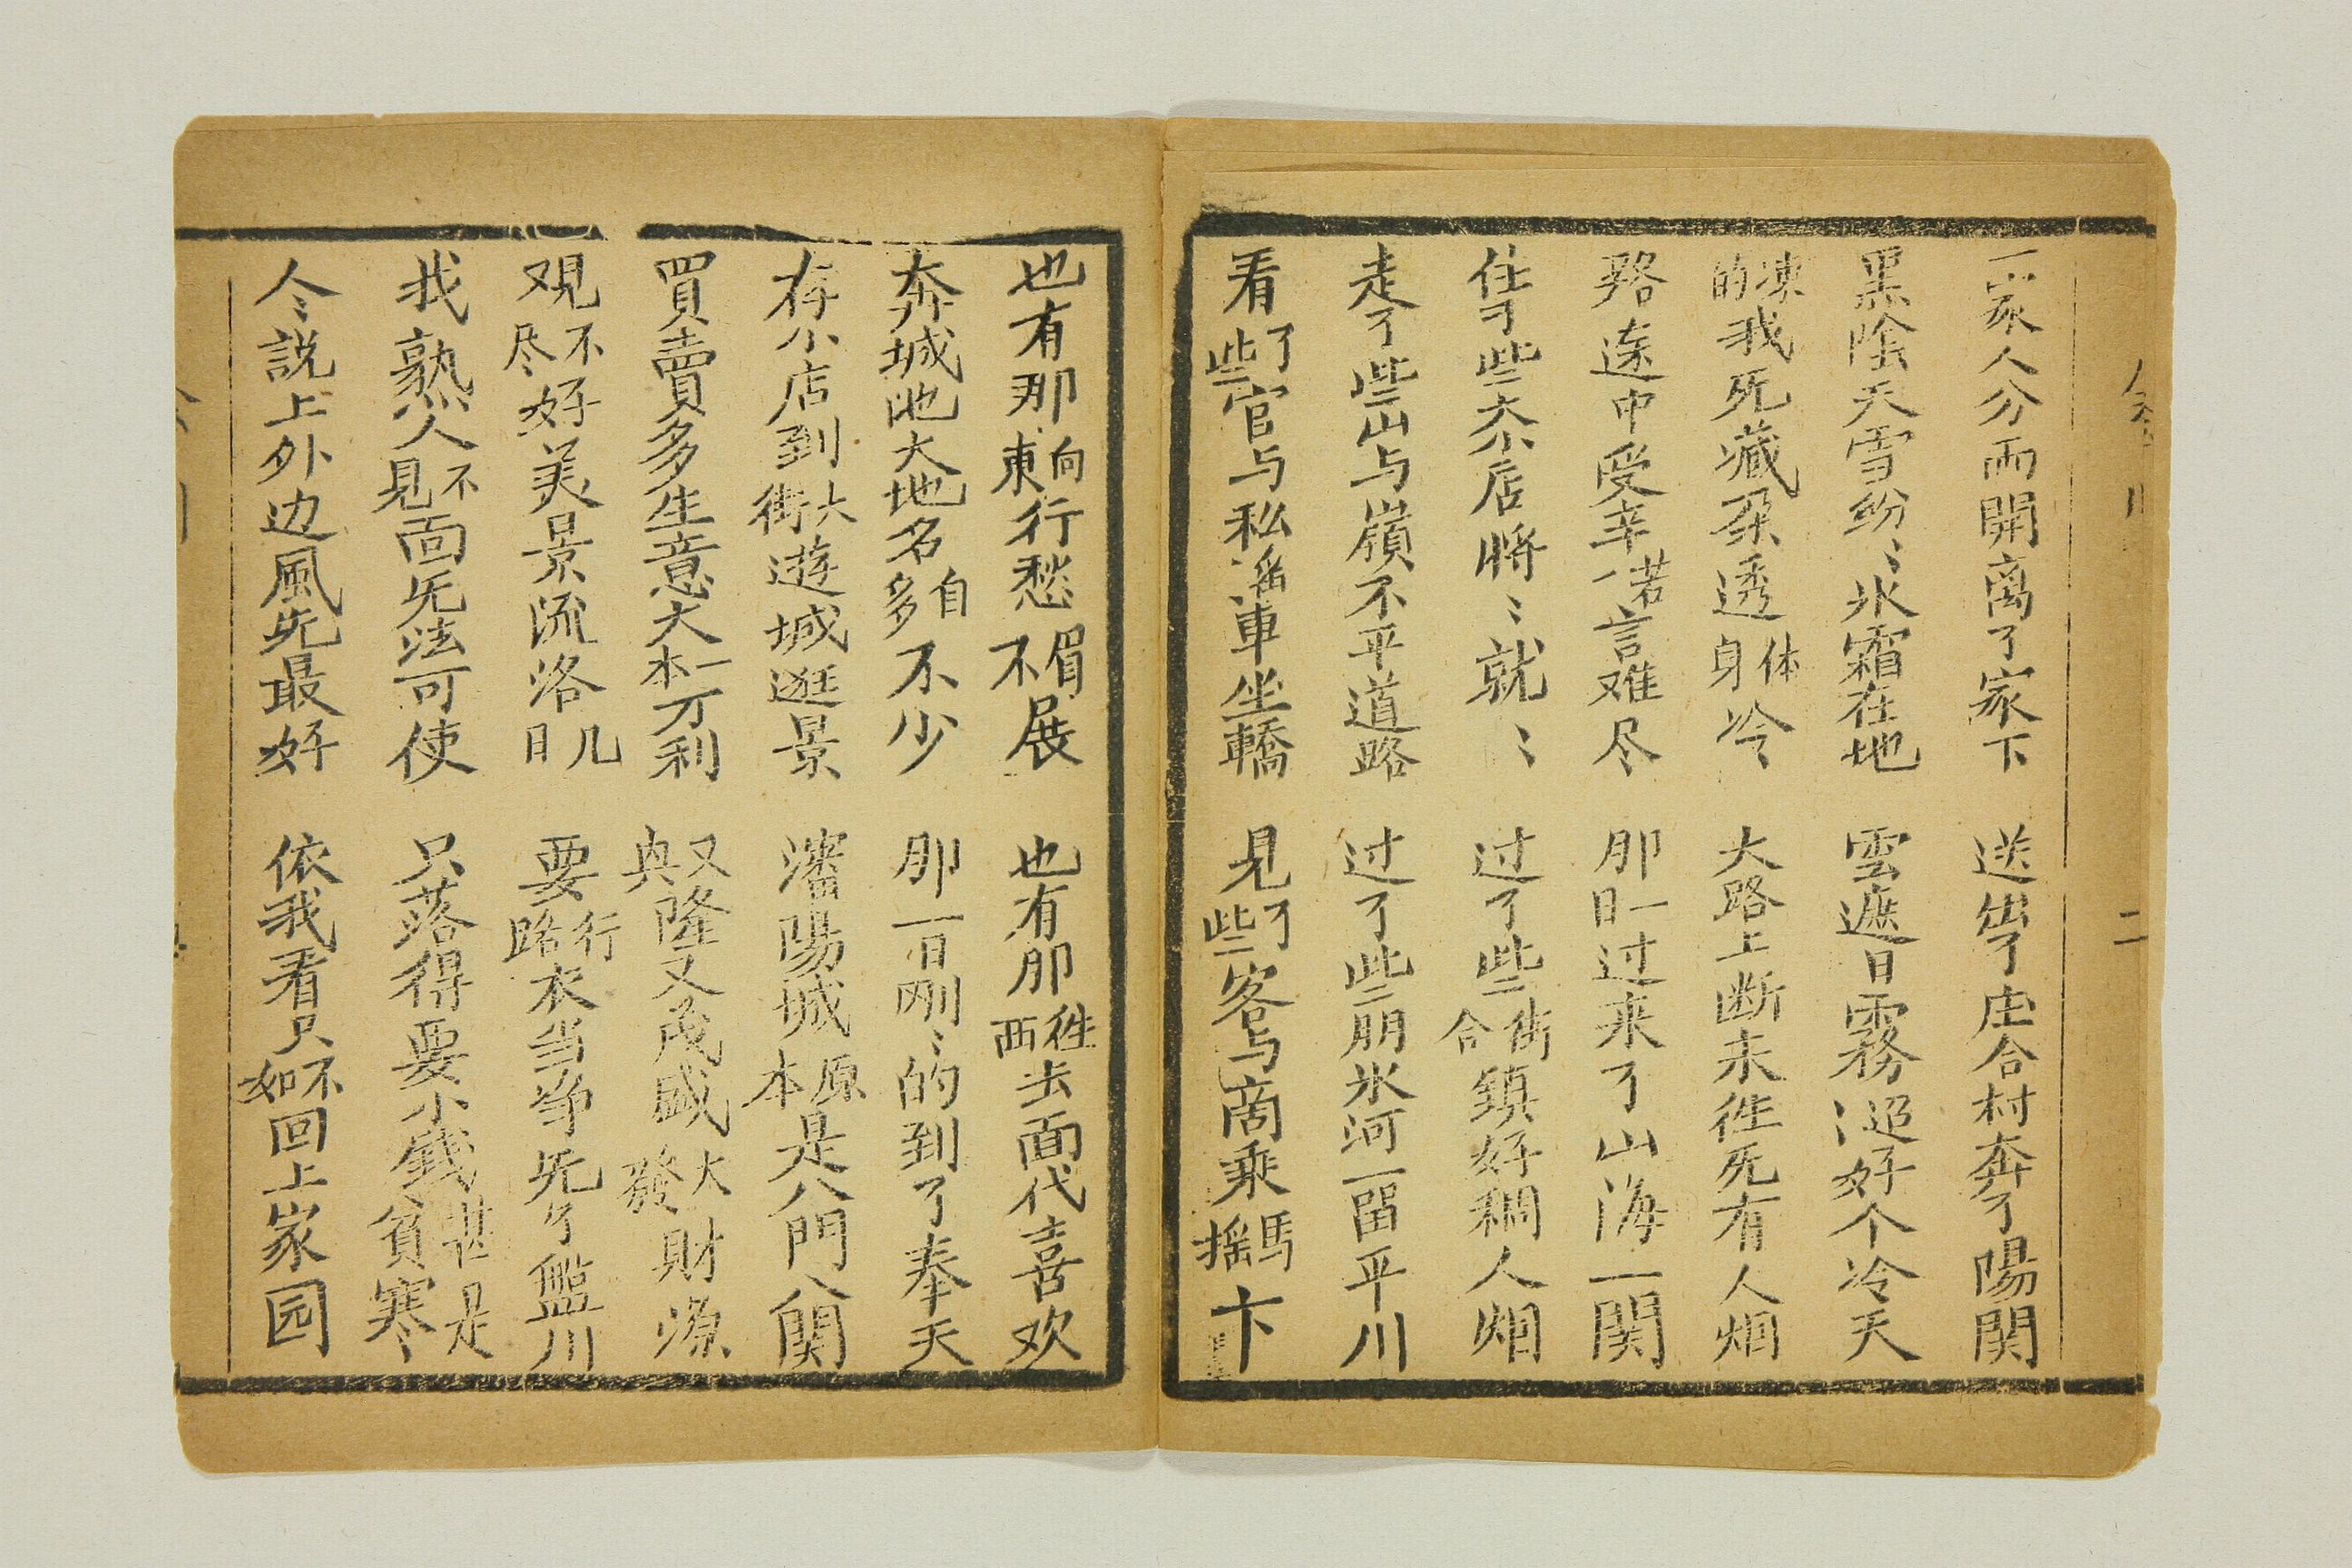 一家人分而開离了家下　送出了庄合村奔了陽関
黑陰天雪紛〻氷霜在地　雲遮日霧〻迢好个冷天
凍的我死藏朶透身体冷　大路上断未徃死有人烟
路途中受辛苦一言难尽　那一日过来了山海一関
住了些大小店將〻就〻　过了些街合鎮好稠人烟
走了些山与嶺不平道路　过了些朋氷河一畄平川
看了些官与私車坐轎　見了些客与商乘馬摇卞
也有那向東行愁眉不展　也有那徃西步面代喜欢
奔城池大地名自多不少　那一日刚〻的到了奉天
存小店到大街遊城逛景　瀋陽城原本是八門八関
買賣多生意大一本万利　又興隆又茂盛大發財源
观不尽好美景流洛几日　要行路衣当净死了盘川
我熟人不見面死法可使　只落得要小錢甚是貧寒
人〻説上外边風光最好　依我看只不如回上家园
二